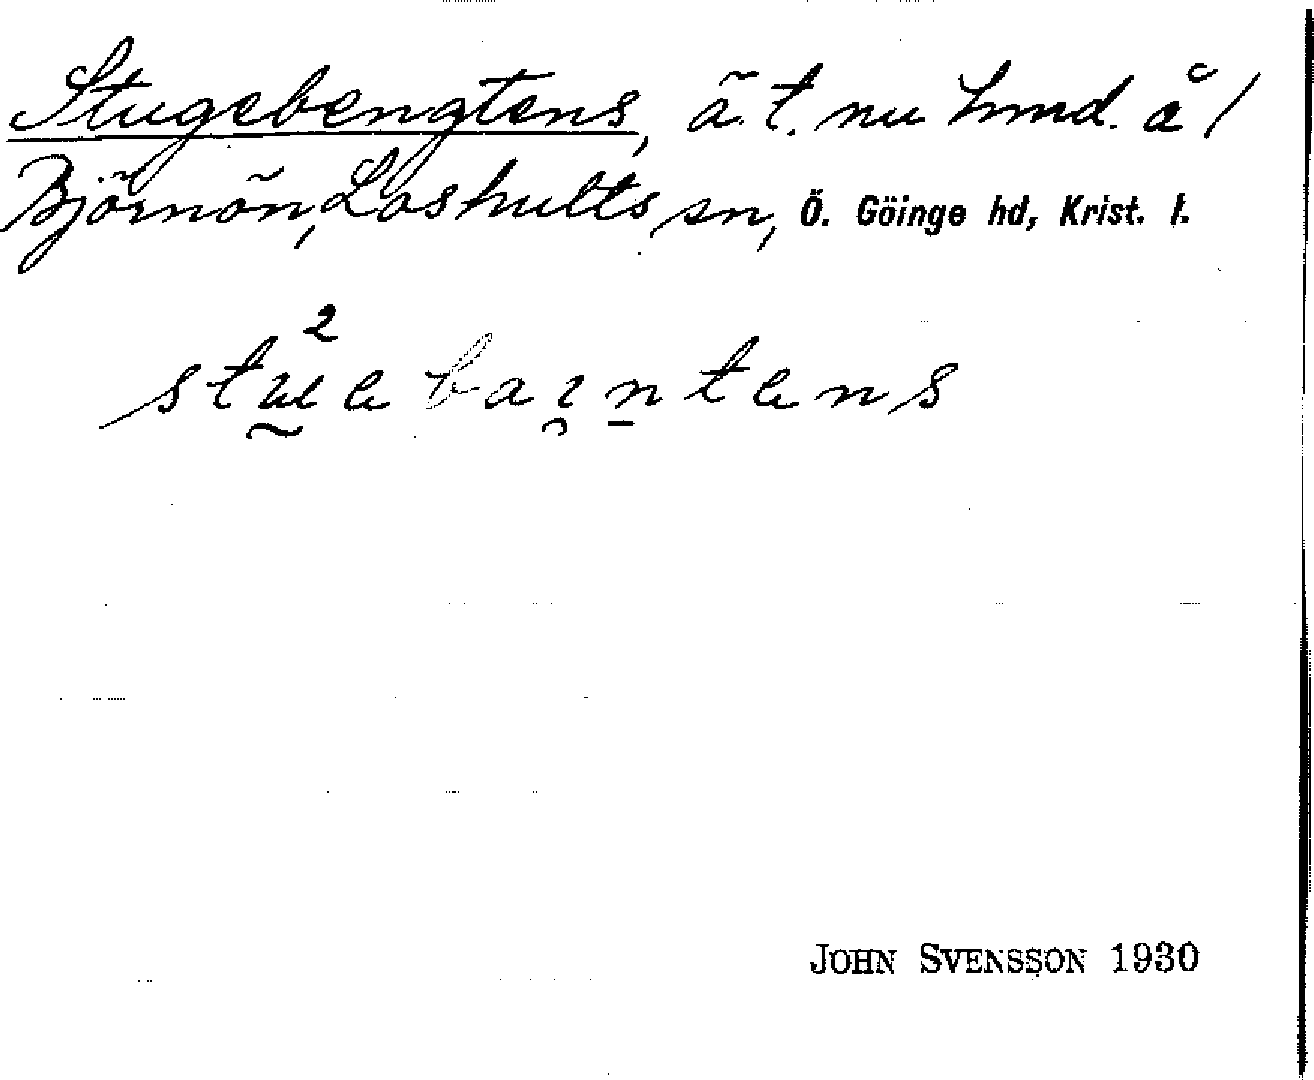 Stugebengtens, ä.t. nu hmd. å /
Björnön, Loshults sn, Ö. Göinge hd, Krist. l.
2
stuebaıntens
JOHN SVENSSON 1930